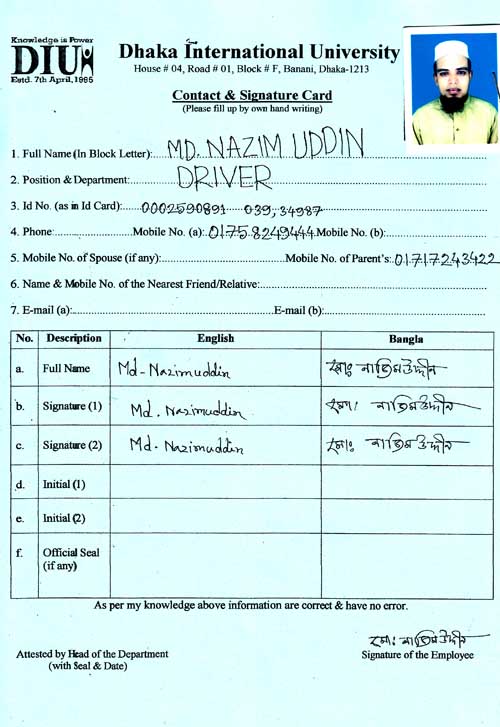 Knowledge is Power
DIU
Estd. 7th April, 1995
Dhaka International University
House # 04, Road # 01, Block # F, Banani, Dhaka-1213
Contact & Signature Card
(Please fill up by own hand writing)
1. Full Name (In Block Letter): MD. NAZIM UDDIN
2. Position & Department: DRIVER
3. Id No. (as in Id Card): 0002590891 039,34987
4. Phone: Mobile No. (a): 01758249444 Mobile No. (b):
5. Mobile No. of Spouse (if any): Mobile No. of Parent's: 01717243422
6. Name & Mobile No. of the Nearest Friend/Relative:
7. E-mail (a): E-mail (b):
No. Description English Bangla
a. Full Name Md-Nazimuddin মোঃ নাজিমউদ্দীন
b. Signature (1) Md. Nazimuddin মোঃ নাজিমউদ্দীন
c. Signature (2) Md. Nazimuddin মোঃ নাজিমউদ্দীন
d. Initial (1)
e. Initial (2)
f. Official Seal
(if any)
As per my knowledge above information are correct & have no error.
মোঃ নাজিমউদ্দীন
Attested by Head of the Department Signature of the Employee
(with Seal & Date)